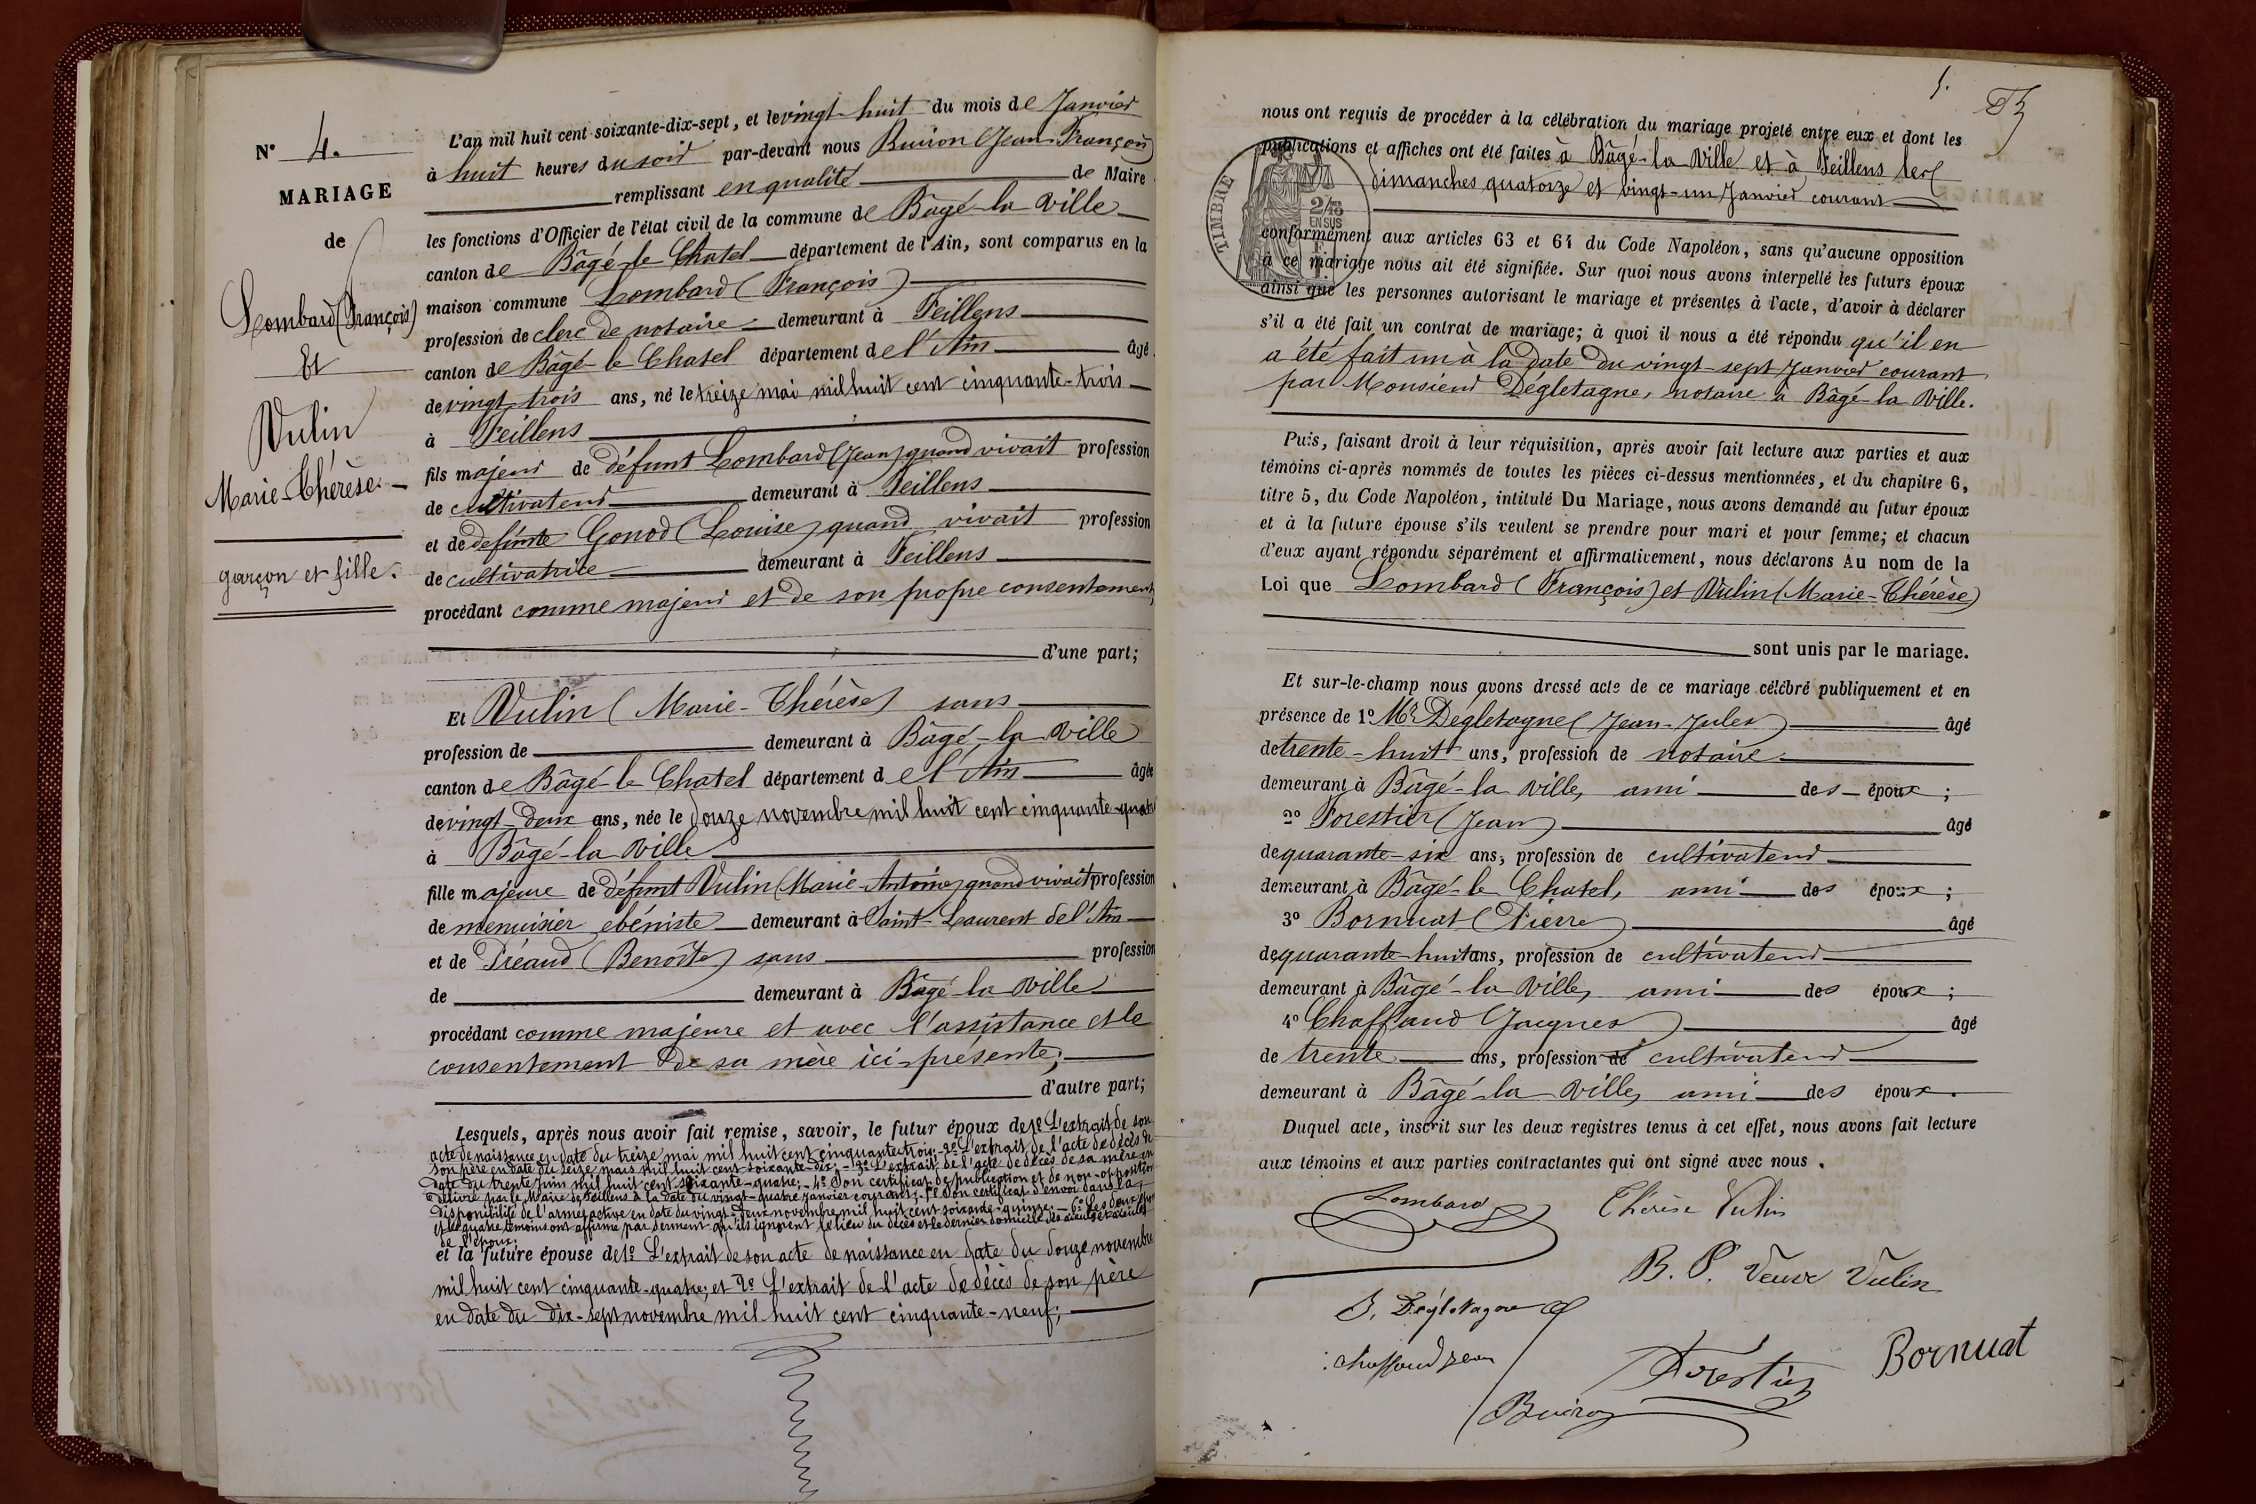 N° 4.
MARIAGE
de
Lombard (François)
Et
Vulin
Marie-Thérèse.
garçon et fille.
L'an mil huit cent soixante-dix-sept, et le vingt-huit du mois de Janvier
à huit heures du soir par-devant nous Buiron (Jean François)
remplissant en qualité de Maire
les fonctions d'Officier de l'état civil de la commune de Bâgé-la Ville
canton de Bâgé-le Chatel département de l'Ain, sont comparus en la
maison commune Lombard (François)
profession de clerc de notaire demeurant à Feillens
canton de Bâgé-le Chatel département de l'Ain âgé
de vingt trois ans, né le treize mai mil huit cent cinquante-trois
à Feillens
fils majeur de défunt Lombard (Jean) quand vivait profession
de cultivateur demeurant à Feillens
et de défunte Gonod (Louise) quand vivait profession
de cultivatrice demeurant à Feillens
procédant comme majeur et de son propre consentement,
d'une part;
Et Vulin (Marie-Thérèse) sans
profession de demeurant à Bâgé-la Ville
canton de Bâgé-le Chatel département de l'Ain âgée
de vingt-deux ans, née le douze novembre mil huit cent cinquante-quatre
à Bâgé-la Ville
fille majeure de défunt Vulin (Marie-Antoine) quand vivait profession
de menuisier ébéniste demeurant à Saint-Laurent de l'Ain
et de Préaud (Benoîte) sans profession
de demeurant à Bâgé-la Ville
procédant comme majeure et avec l'assistance et le
consentement de sa mère ici-présente;
d'autre part;
Lesquels, après nous avoir fait remise, savoir, le futur époux de 1° L'extrait de son
acte de naissance en date du treize mai mil huit cent cinquante trois; - 2° L'extrait de l'acte de décès de
son père en date du seize mars mil huit cent soixante-dix; - 3° L'extrait de l'acte de décès de sa mère en
date du trente Juin mil huit cent soixante-quatre; - 4° Son certificat de publication et de non-opposition
délivré par le Maire de Feillens à la date du vingt-quatre Janvier courant; - 5° Son certificat d'envoi dans la
disponibilité de l'armée active en date du vingt-deux novembre mil huit cent soixante-quinze. - 6° Les deux époux
et les quatre témoins ont affirmé par serment qu'ils ignorent le lieu du décès et le dernier domicile des aïeuls et aïeules
de l'époux;
et la future épouse de 1° L'extrait de son acte de naissance en date du douze novembre
mil huit cent cinquante-quatre; et 2° L'extrait de l'acte de décès de son père
en date du dix-sept novembre mil huit cent cinquante-neuf;
5.
nous ont requis de procéder à la célébration du mariage projeté entre eux et dont les
publications et affiches ont été faites à Bâgé-la Ville et à Feillens les
dimanches quatorze et vingt-un Janvier courant
TIMBRE
2/10
EN SUS
conformément aux articles 63 et 64 du Code Napoléon, sans qu'aucune opposition
à ce mariage nous ait été signifiée. Sur quoi nous avons interpellé les futurs époux
ainsi que les personnes autorisant le mariage et présentes à l'acte, d'avoir à déclarer
s'il a été fait un contrat de mariage; à quoi il nous a été répondu qu'il en
a été fait un à la date du vingt-sept Janvier courant
par Monsieur Dégletagne, notaire à Bâgé-la Ville.
Puis, faisant droit à leur réquisition, après avoir fait lecture aux parties et aux
témoins ci-après nommés de toutes les pièces ci-dessus mentionnées, et du chapitre 6,
titre 5, du Code Napoléon, intitulé Du Mariage, nous avons demandé au futur époux
et à la future épouse s'ils veulent se prendre pour mari et pour femme; et chacun
d'eux ayant répondu séparément et affirmativement, nous déclarons Au nom de la
Loi que Lombard (François) et Vulin (Marie-Thérèse)
sont unis par le mariage.
Et sur-le-champ nous avons dressé acte de ce mariage célébré publiquement et en
présence de 1° Mr Dégletagne (Jean-Jules) âgé
de trente-huit ans, profession de notaire
demeurant à Bâgé-la Ville, ami des époux;
2° Forestier (Jean) âgé
de quarante-six ans, profession de cultivateur
demeurant à Bâgé-le Chatel, ami des époux;
3° Bornuat (Pierre) âgé
de quarante-huit ans, profession de cultivateur
demeurant à Bâgé-la Ville, ami des époux;
4° Chaffaud (Jacques) âgé
de trente ans, profession de cultivateur
demeurant à Bâgé-la Ville, ami des époux.
Duquel acte, inscrit sur les deux registres tenus à cet effet, nous avons fait lecture
aux témoins et aux parties contractantes qui ont signé avec nous.
Lombard Thérèse Vulin
B. P. Veuve Vulin
J. Dégletagne
Chaffaud Jean Forestier Bornuat
Buiron